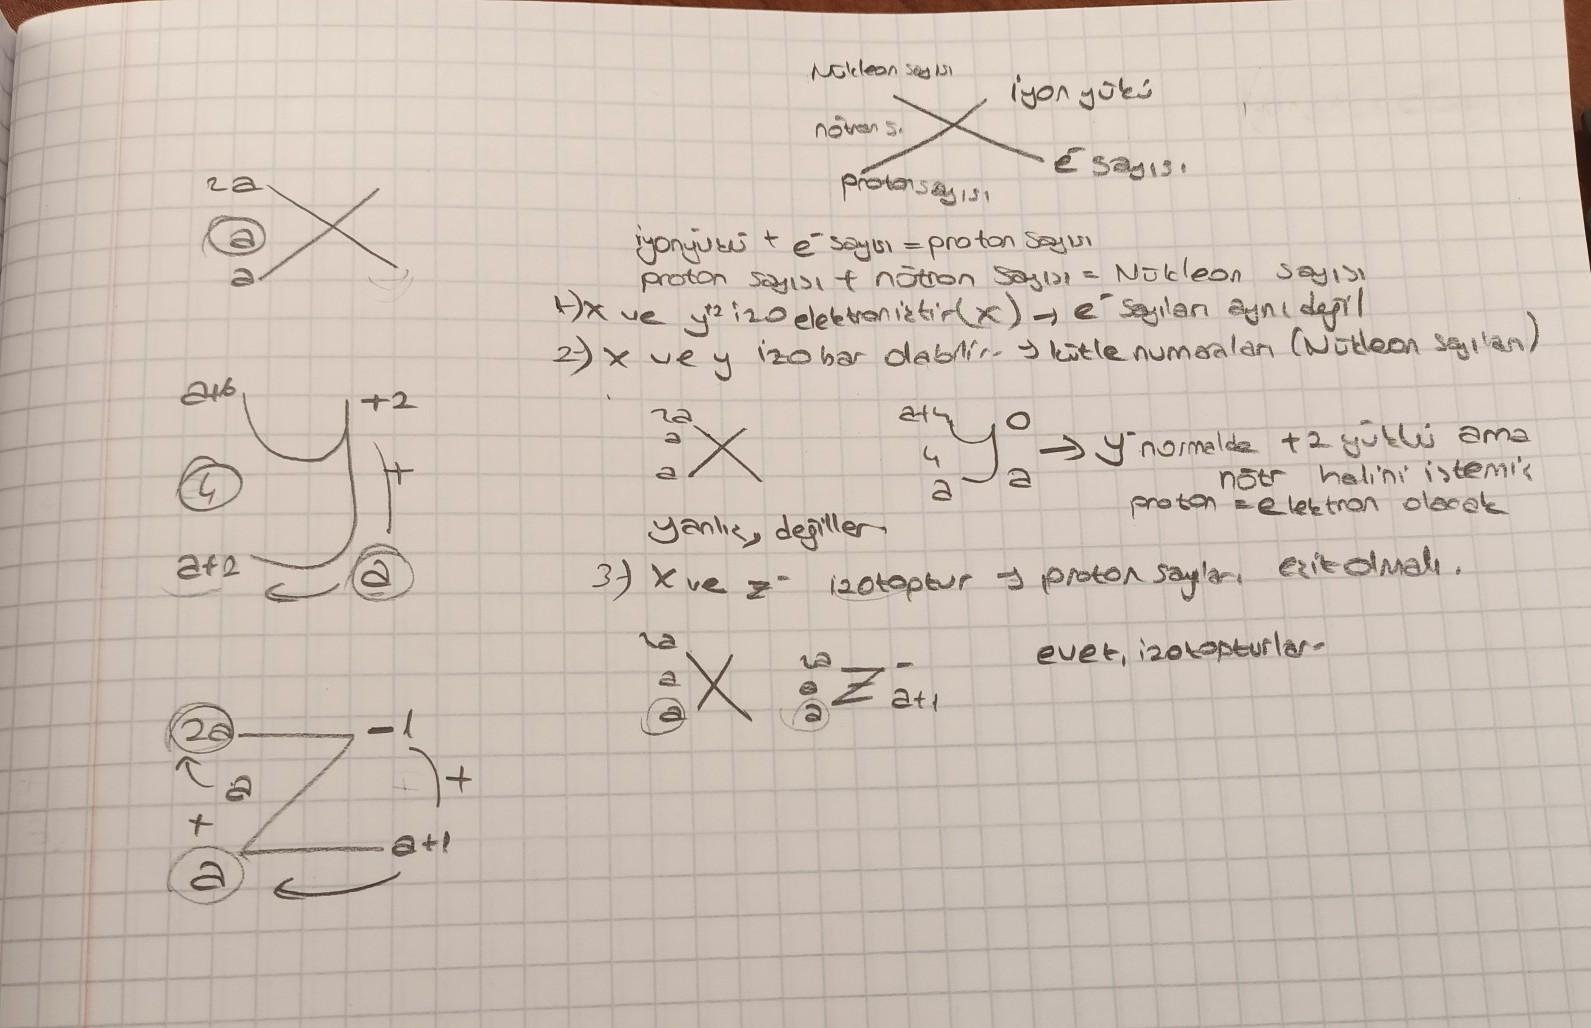 Nükleon sayısı
iyon yükü
nötron s.
e⁻ sayısı
proton sayısı
2a
a
a
X
iyonyükü + e⁻ sayısı = proton sayısı
proton sayısı + nötron sayısı = Nükleon sayısı
1-) X ve y⁺² izoelektroniktir (x) → e⁻ sayıları aynı değil
2-) X ve y izobar olabilir → kütle numaraları (Nükleon sayıları)
a+6
+2
4
+
a+2
a
2a
a
a
X
a+4
4
a
y
0
a
→ y normalde +2 yüklü ama
nötr halini istemiş
proton = elektron olacak
yanlış, değiller
3-) X ve z⁻ izotoptur → proton sayıları eşit olmalı.
2a
a
a
X
2a
a
a
Z
-
a+1
evet, izotopturlar.
2a
-1
Z
a
+
+
a+1
a